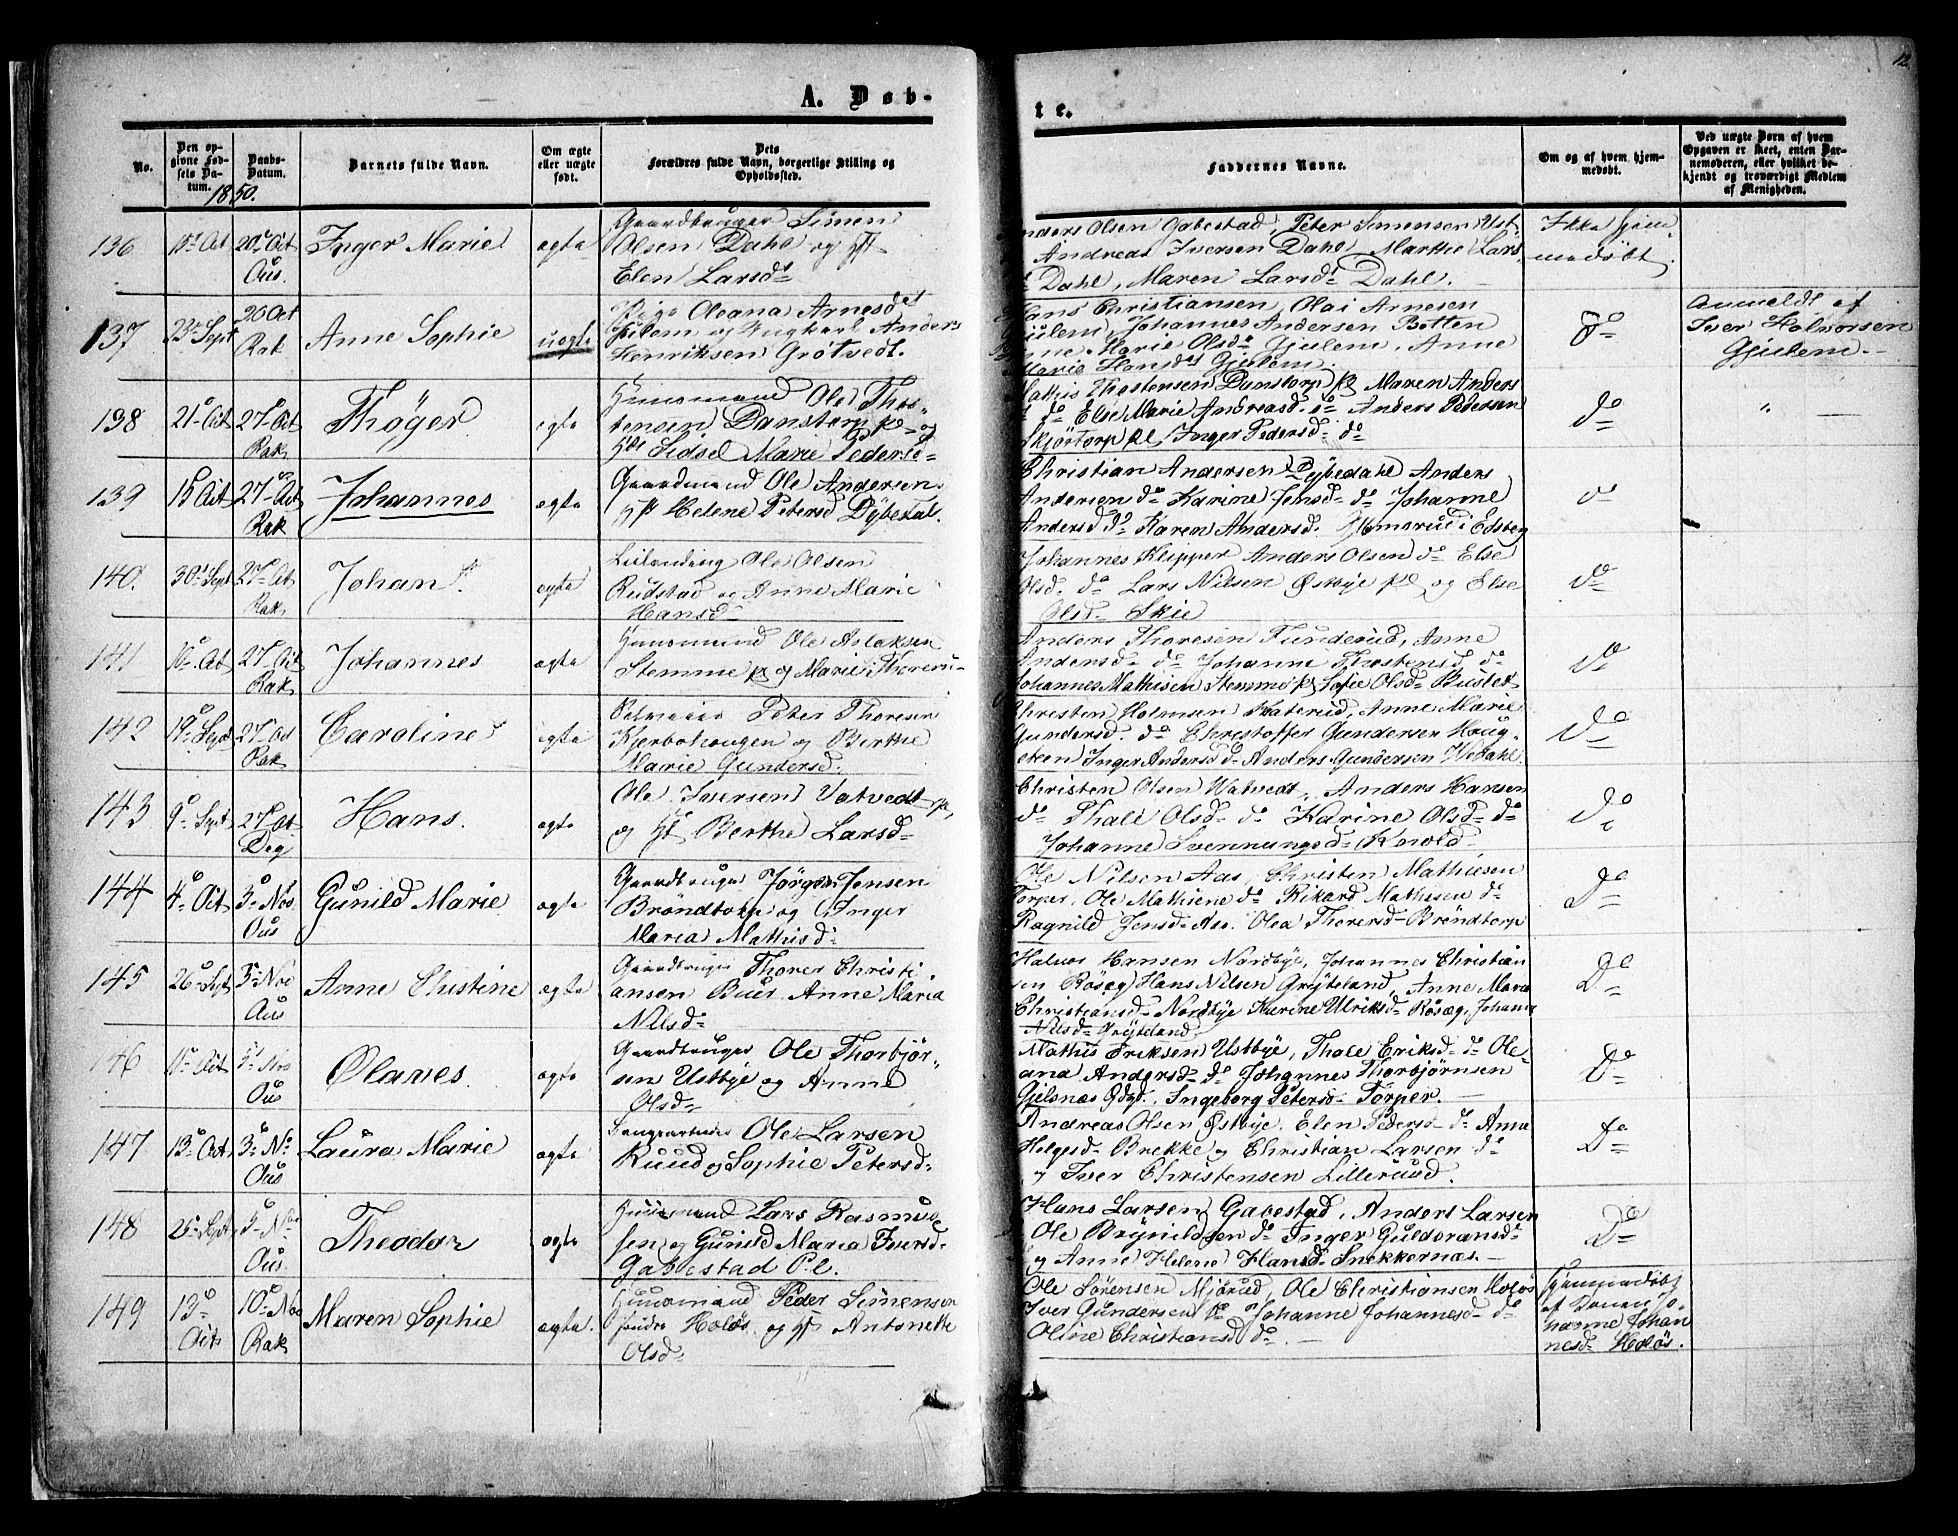 12
A. Døb-
te.
No.
Den op-
givne Fød-
sels Da-
tum.
Daabs-
Datum.
1850.
Barnets fulde Navn.
Om ægte
eller uægte
født.
Dets
Forældres fulde Navn, borgerlige Stilling og
Opholdssted.
Faddernes Navne.
Om og af hvem hjem-
medøbt.
Ved uægte Børn af hvem
Opgaven er skeet, enten Bar-
nemoderen, eller hvilket be-
kjendt og troværdigt Medlem
af Menigheden.
136 20 Oct Inger Marie ægte Gaardbruger Simen
Aus. Olsen Dahl og H
Elen Larsd
Anders Olsen Gabestad, Peter Simensen Ust
Andreas Iversen Dahl Marthe Lars
Dahl, Maren Larsd Dahl.
Ikke hjem
medøbt
137 23 Sept 20 Oct Anne Sophie uægte Pige Oleana Arnesd
Rak Gjulem og Ungkarl Anders
Henriksen Grötvedt.
Hans Christiansen, Olai Arnesen
Gjulem, Johannes Andersen Botten
Anne Marie Olsd Gjulem, Anne
Marie Hansd Gjulem.
do
Anmeldt af
Iver Halvorsen
Gjulem.
138 21 Oct 27 Oct Thøger ægte Huusmand Ole Thos-
Rak tensen Danstorp pl og
H Sidsel Marie Pedersd
Mathis Thostensen Danstorp pl Maren Anders
do Else Marie Andreasd do Anders Pedersen
Skjörtorp pl Inger Pedersd do
do
139 27 Oct Johannes ægte Gaardmand Ole Andersen
Rak H Helene Petersd Dÿbedal.
Christian Andersen Dÿbedahl Anders
Andersen do Karine Jensd do Johanne
Andersd do Karen Andersd. i Edsberg
do
140. 30 Sept 27 Oct Johan ægte Leilending Ole Olsen
Rak Rudstad og Anne Marie
Hansd
Johannes Klypper Anders Olsen do Else
Olsd do Lars Nilsen Østbye pl og Else
Olsd Skie
do
141 10 Oct 27 Oct Johannes ægte Huusmand Ole Aslaksen
Rak Stemme pl og Marie
Anders Thoresen Funderud, Anne
Andersd do Johanne Thostensd do
Johannes Mathisen Stemme pl Sofie Olsd Busted
do
142 19 Sept 27 Oct Caroline ægte Peter Thoresen
Rak Kjerbohougen og Berthe
Marie Gundersd.
Christen Holmsen Haterud, Anne Marie
Gundersd. do Christoffer Gundersen Houg-
Inger Andersd do Anders Gundersen Wedahl
do
143 9 Sept 27 Oct Hans. ægte Ole Iversen Vatvedt pl,
Deg og H Berthe Larsd
Christen Olsen Watvedt, Anders Hansen
do Thale Olsd do Karine Olsd do
Johanne Svennungsd Knold
do
144 4 Oct 3 Nov Gunild Marie ægte Gaardbruger Jörgen Jensen
Aus Bröndtorp og Inger
Maria Mathisd
Ole Nilsen Aas, Christen Mathiesen
Torper, Ole Mathiene do Rikard Mathisen do
Ragnild Jensd Aas. Olea Thoresd Bröndtorp
Do
145 26 Sept 3 Nov Anne Christine ægte Gaardbruger Thorer Christi-
Aus ansen Buer Anne Maria
Nilsd
Halvor Hansen Nordbÿe, Johannes Christian
sen Rösæg Hans Nilsen Grÿteland, Anne Maria
Christiansd Nordbÿe Karine Ulriksd Rösæg, Johanne
Nilsd Grÿteland
Do
146 Oct Nov Olaves ægte Gaardbruger Ole Thorbjör-
Aus sen Ustbÿe og Anne
Olsd
Mathis Eriksen Ustbÿe, Thale Eriksd do Ole-
ana Andersd do Johannes Thorbjörnsen
Gjelsnæs Ingeborg Petersd Törper.
Do
147 13 Oct 3 No Laura Marie ægte Ole Larsen
Aus Ruud og Sophie Petersd
Andreas Olsen Østbÿe, Elen Pedersd do Anne
Helgesd Brekke og Christian Larsen do
og Iver Christensen Lillerud.
Do
148 25 Sept 3 Nov Theodor ægte Huusmand Lars Rasmus-
Aus sen og Gunild Maria Iversd
Gabestad Pl.
Hans Larsen Gabestad, Anders Larsen
Ole Brÿnildsen do Inger Guldbransd
og Anne Helene Hansd Snekkernæs.
Do
149 13 Oct 10 Nov Maren Sophie ægte. Huusmand Peder Simensen
Rak Holös og H Antonette
Olsd
Ole Sörensen Mjörud, Ole Christiansen Holös
Iver Gundersen do Johanne Johannesd do
Oline Christiansd do.
hjemmedöbt
af Konen Jo-
hanne Johan
nesd Holös.